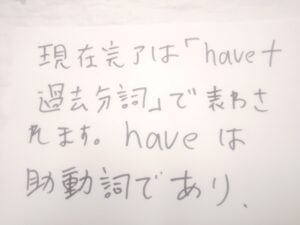 現在完了は「have+
過去分詞」で表わさ
れます。haveは
助動詞であり、